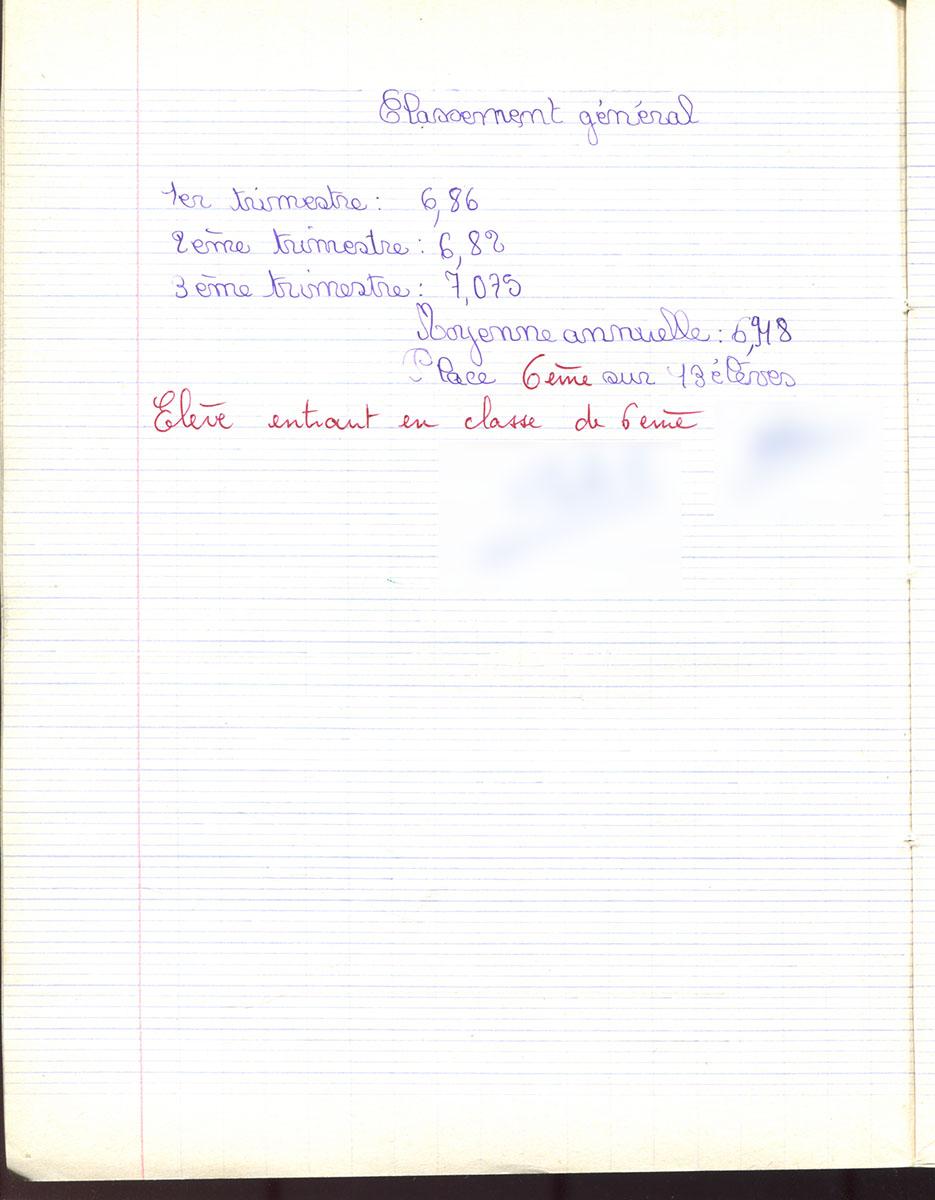 Classement général
1er trimestre : 6,86
2ème trimestre : 6,82
3ème trimestre : 7,075
Moyenne annuelle : 6,918
Place 6ème sur 13 élèves
Elève entrant en classe de 6ème